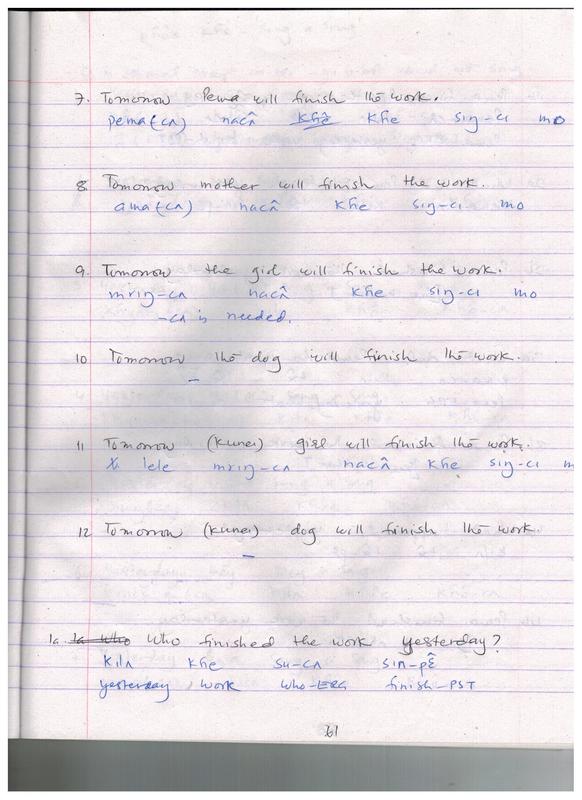 7. Tomorrow Pema will finish the work.
pema(-cʌ) nacʌ̂ khê khe siŋ-ci mo
8. Tomorrow mother will finish the work.
ama(-cʌ) nacʌ̂ khe siŋ-ci mo
9. Tomorrow the girl will finish the work.
mriŋ-cʌ nacʌ̂ khe siŋ-ci mo
-cʌ is needed.
10 Tomorrow the dog will finish the work.
—
11 Tomorrow (kunei) girl will finish the work.
lele mriŋ-cʌ nacʌ̂ khe siŋ-ci m
12 Tomorrow (kunei) dog will finish the work.
—
1a. 1a Who Who finished the work yesterday?
kilʌ khe su-cʌ sin-pɛ̂
yesterday work who-ERG finish-PST
61